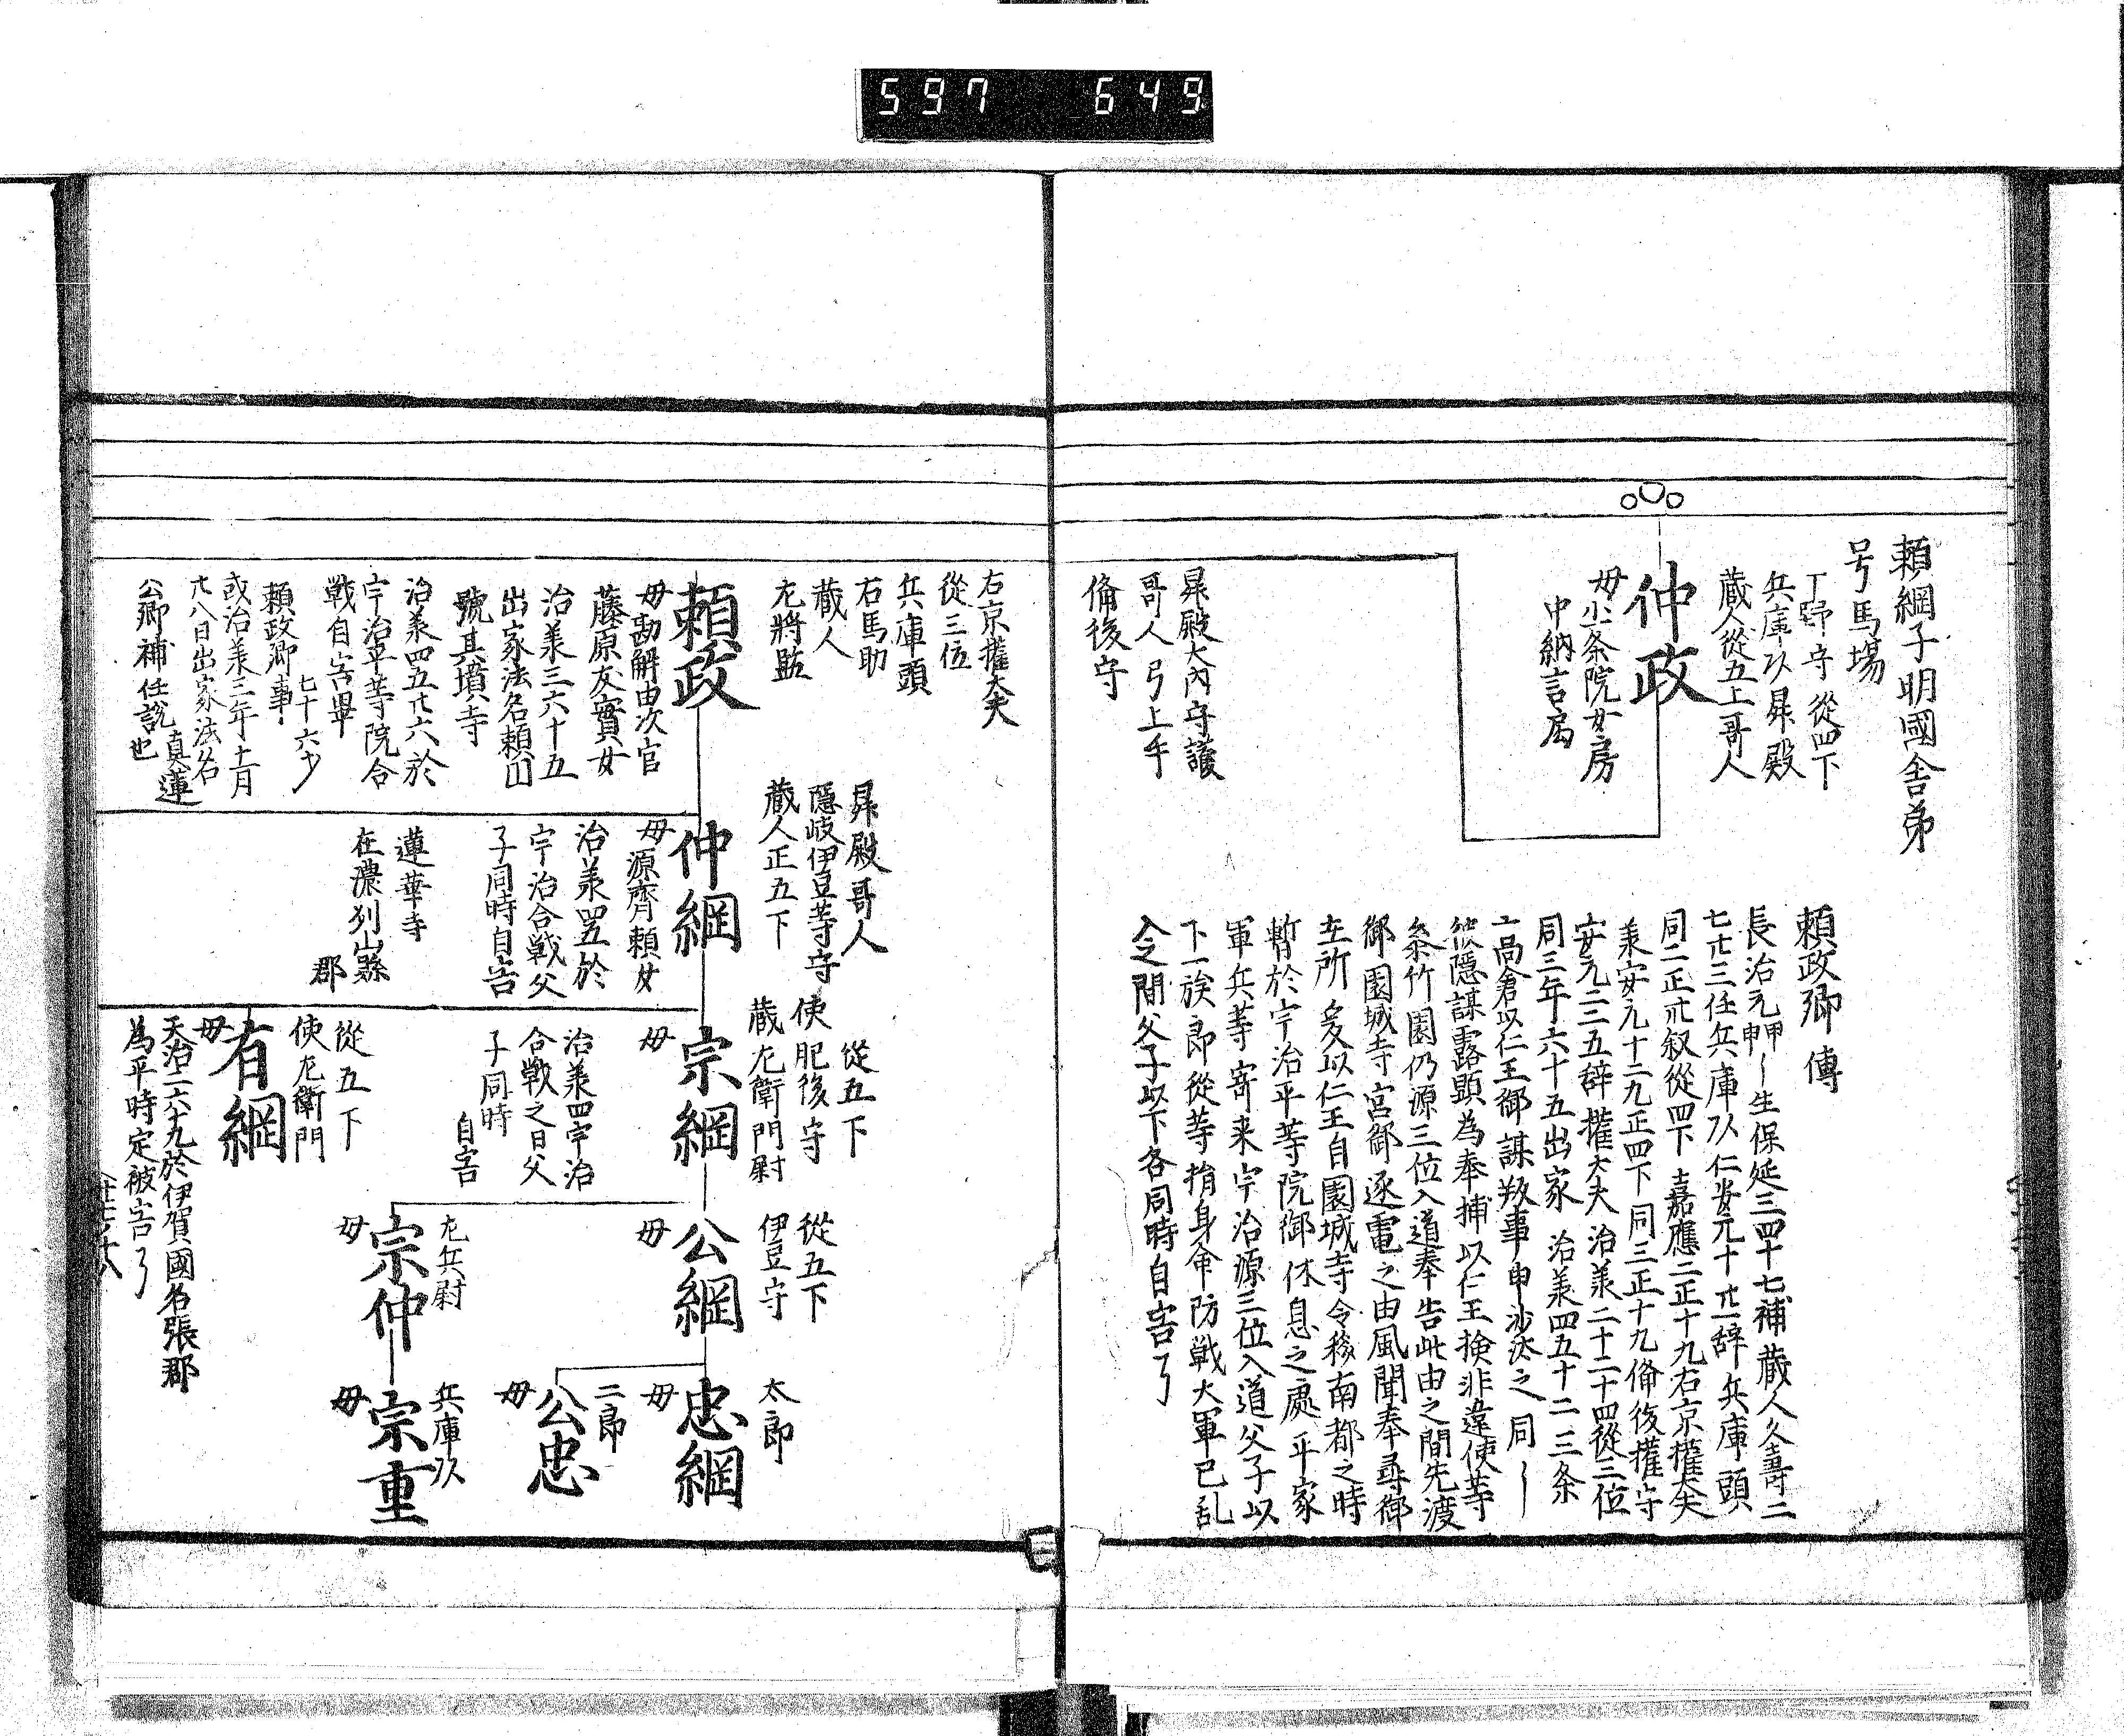 597 649
頼綱子明國舎弟
号馬場
下野守 從四下
兵庫頭 昇殿
蔵人從五上哥人
仲政
母 条院女房
中納言局
頼政卿傳
長治元甲申〵生保延三四十七補蔵人久壽二
七廿三任兵庫頭仁安元十廿一辞兵庫頭
同二正卅叙從四下嘉應二正十九右京權大夫
羕安元十二九正四下同三正十九俻後權守
安元二三五辞權大夫治羕二十二十四從三位
同三年六十五出家 治羕四五十二三条
高倉以仁王御謀叛事申沙汰之同〵
彼隠謀露顕為奉捕以仁王撿非違使等
参竹園仍源三位入道奉告此由之間先渡
御園城寺宮御逐電之由風聞奉尋御
在所爰以仁王自園城寺令移南都之時
暫於宇治平等院御休息之處平家
軍兵等寄来宇治源三位入道父子以
下一族郎從等捐身命防戦大軍已乱
入之間父子以下各同時自害了
昇殿大内守護
哥人弓上手
俻後守
右京權大夫
從三位
兵庫頭
右馬助
蔵人
左將監
頼政
母勘解由次官
藤原友實女
治羕三六十五
出家法名頼円
號其墳寺
治羕四五廿六於
宇治平等院合
戦自害畢
七十六才
頼政卿事
或治羕三年十一月
廿八日出家法名
真蓮
公卿補任説也
昇殿哥人
隠岐伊豆等守
蔵人正五下
仲綱
母源齊頼女
治羕四五於
宇治合戦父
子同時自害
蓮華寺
在濃州山縣
郡
從五下
使肥後守
蔵左衛門尉
宗綱
母
治羕四宇治
合戦之日父
子同時
自害
從五下
使左衛門
有綱
母
天治二六十九於伊賀國名張郡
為平時定被害了
從五下
伊豆守
公綱
母
左兵尉
宗仲
母
太郎
忠綱
母
二郎
公忠
母
兵庫頭
宗重
母